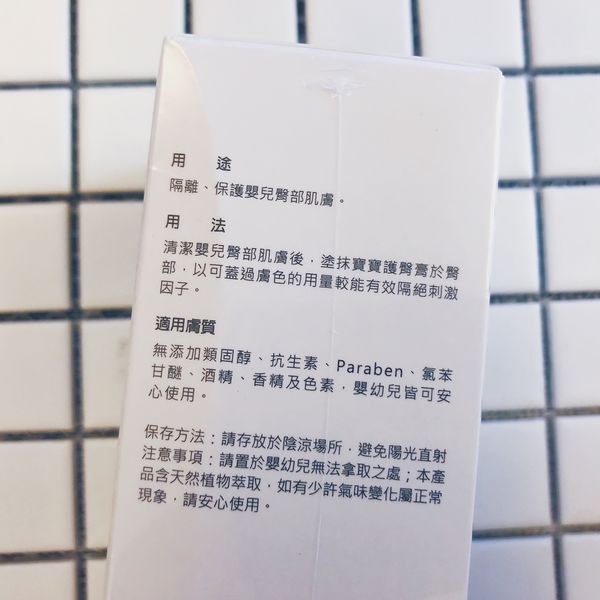 用 途
隔離、保護嬰兒臀部肌膚。
用 法
清潔嬰兒臀部肌膚後，塗抹寶寶護臀膏於臀
部，以可蓋過膚色的用量較能有效隔絕刺激
因子。
適用膚質
無添加類固醇、抗生素、Paraben、氯苯
甘醚、酒精、香精及色素，嬰幼兒皆可安
心使用。
保存方法：請存放於陰涼場所，避免陽光直射
注意事項：請置於嬰幼兒無法拿取之處；本產
品含天然植物萃取，如有少許氣味變化屬正常
現象，請安心使用。